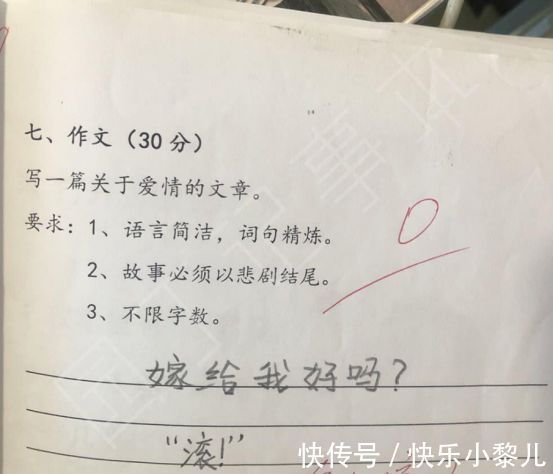 七、作文（30分）
写一篇关于爱情的文章。
要求：1、语言简洁，词句精炼。
2、故事必须以悲剧结尾。
3、不限字数。
0
嫁给我好吗？
“滚！”
快传号／快乐小黎儿